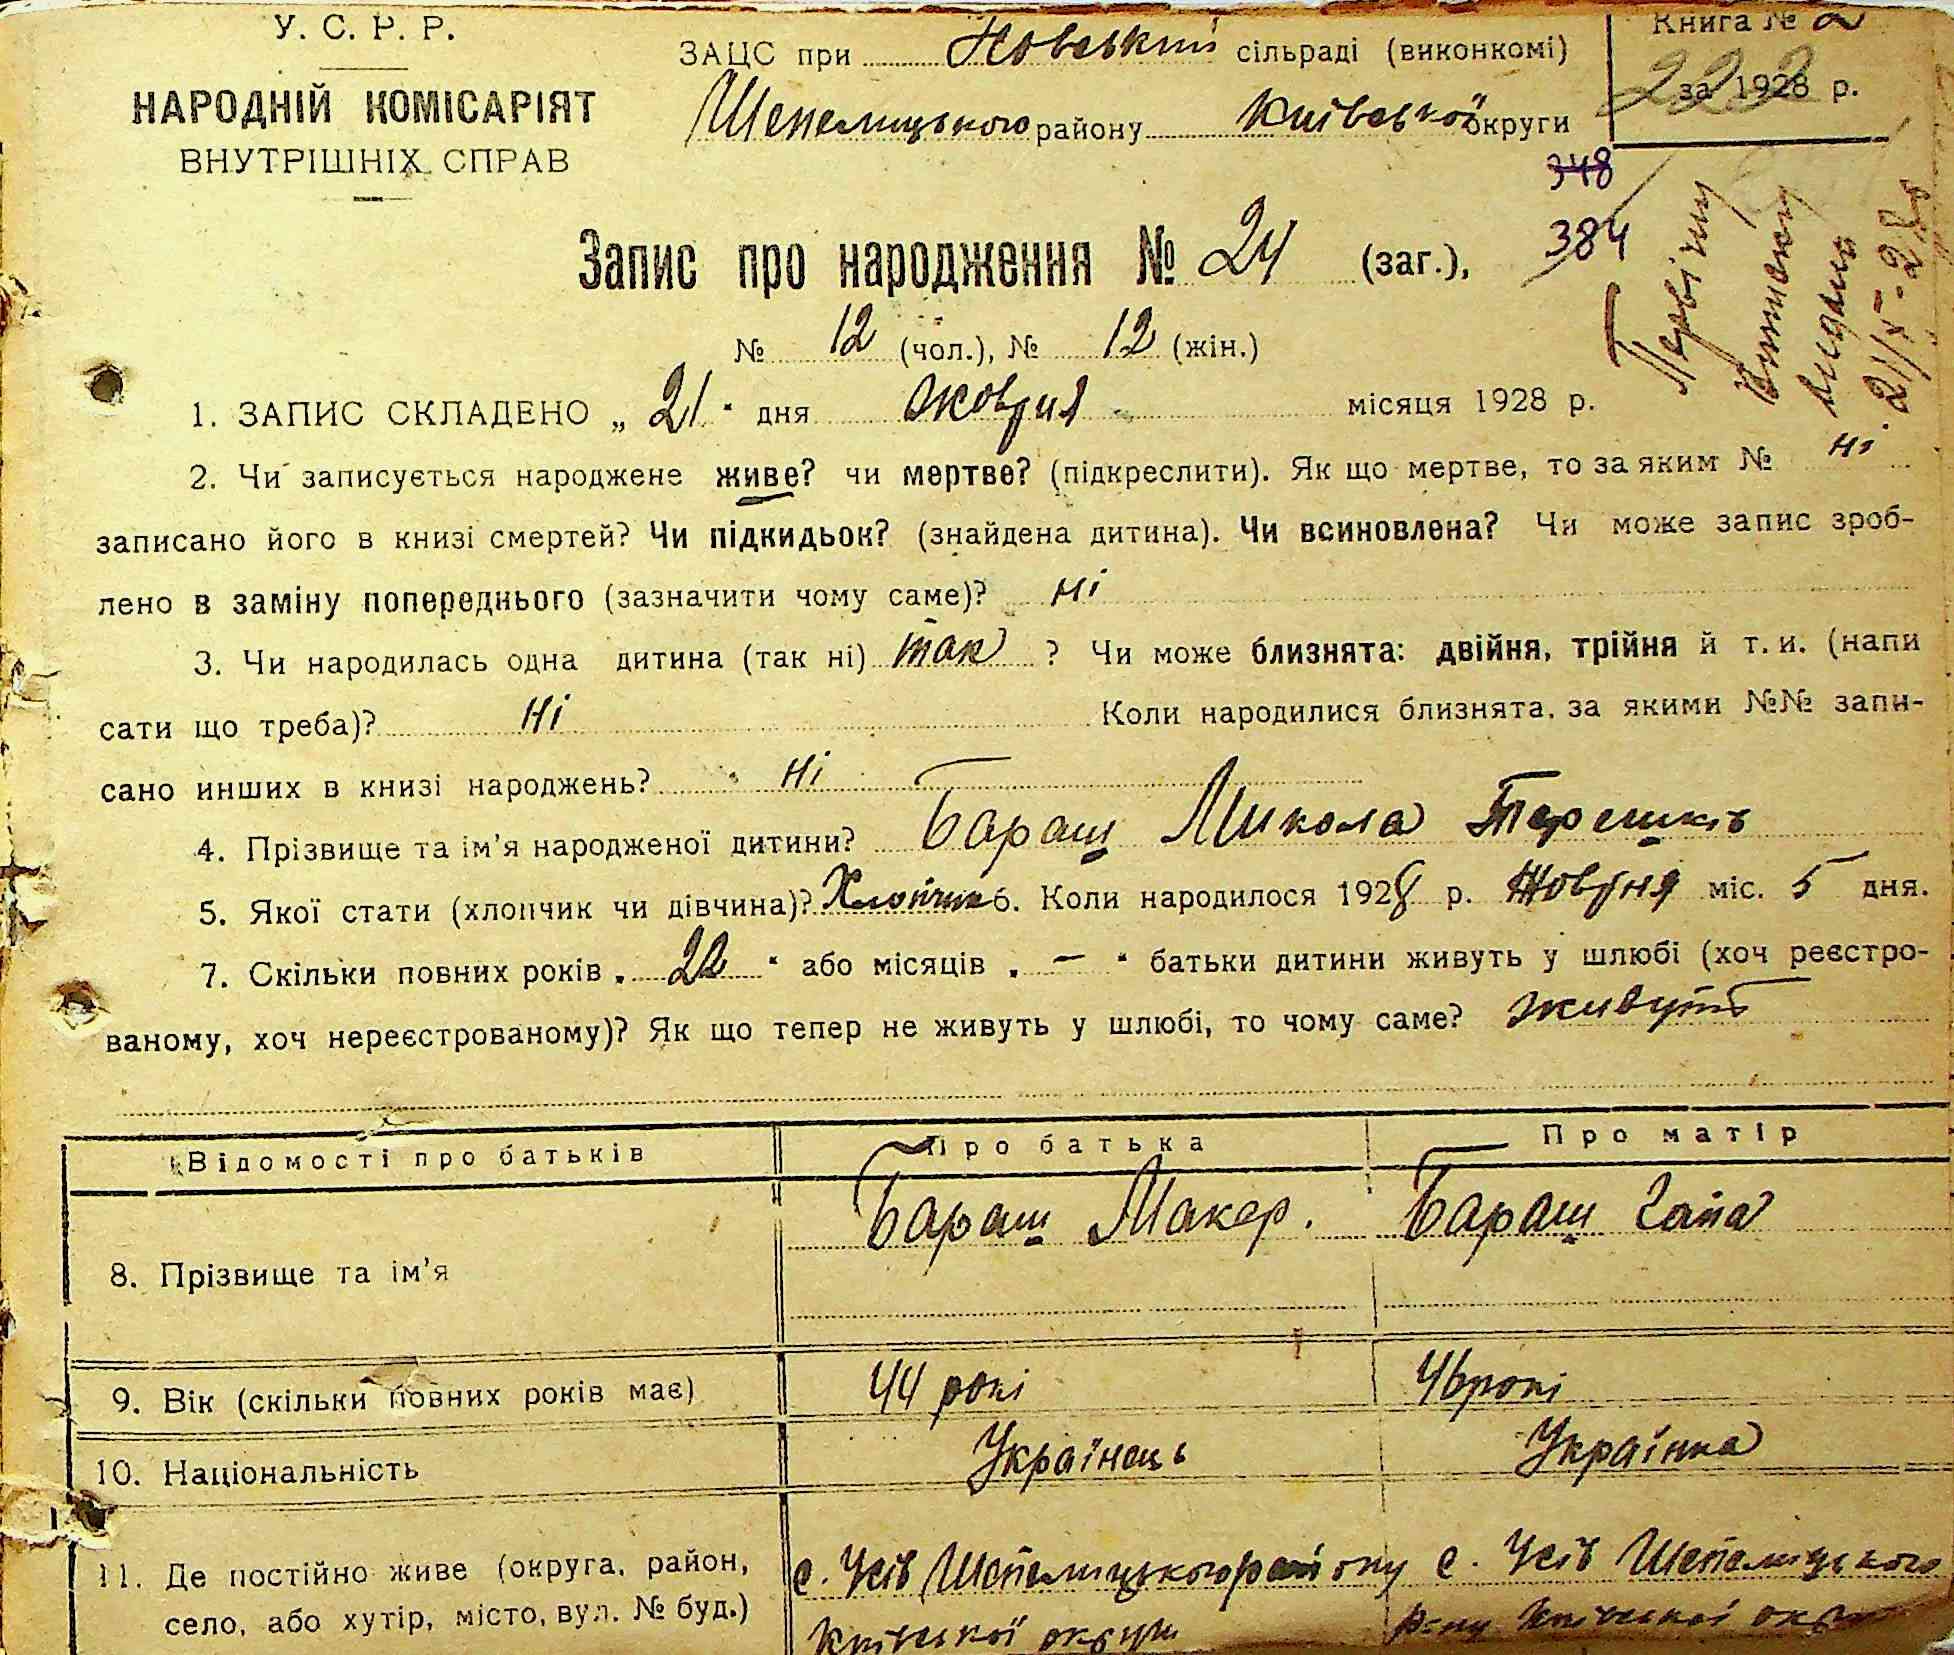 У. С. Р. Р.
НАРОДНІЙ КОМІСАРІЯТ
ВНУТРІШНІХ СПРАВ
ЗАЦС при сільраді (виконкомі)
Шепелицького району Київської округи
Книга № 2
за 1928 р.
222
348
384
Запис про народження № 24 (заг.),
№ 12 (чол.), № 12 (жін.)
1. ЗАПИС СКЛАДЕНО „ 21 " дня жовтня місяця 1928 р.
2. Чи записується народжене живе? чи мертве? (підкреслити). Як що мертве, то за яким № ні
записано його в книзі смертей? Чи підкидьок? (знайдена дитина). Чи всиновлена? Чи може запис зроб-
лено в заміну попереднього (зазначити чому саме)? ні
3. Чи народилась одна дитина (так ні) так ? Чи може близнята: двійня, трійня й т. и. (напи
сати що треба)? Ні Коли народилися близнята, за якими №№ запи-
сано инших в книзі народжень? Ні
4. Прізвище та ім'я народженої дитини? Бараш Микола
5. Якої стати (хлопчик чи дівчина)? Хлопчик 6. Коли народилося 1928 р. Жовтня міс. 5 дня.
7. Скільки повних років „ 22 " або місяців „ — " батьки дитини живуть у шлюбі (хоч реєстро-
ваному, хоч нереєстрованому)? Як що тепер не живуть у шлюбі, то чому саме? живуть
Відомості про батьків Про батька Про матір
8. Прізвище та ім'я Бараш Макар. Бараш Гапа
9. Вік (скільки повних років має) 44 рокі 46 рокі
10. Національність Українець Українка
11. Де постійно живе (округа, район, с. Усів Шепелицького району с. Усів Шепелицького
село, або хутір, місто, вул. № буд.) Київської округи р-ну Київської округи